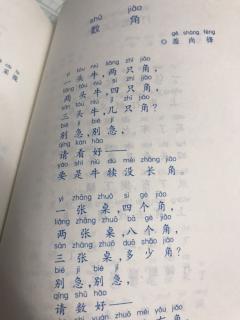 shǔ jiǎo
数 角
gě shàng fēng
◎盖尚锋
yì tóu niú liǎng zhī jiǎo
一头牛，两只角，
liǎng tóu niú sì zhī jiǎo
两头牛，四只角，
sān tóu niú jǐ zhī jiǎo
三头牛，几只角？
bié jí bié jí
别急，别急，
qǐng kàn hǎo
请看好——
yào shì niú dú méi zhǎng jiǎo
要是牛犊没长角。
yì zhāng zhuō sì gè jiǎo
一张桌，四个角，
liǎng zhāng zhuō bā gè jiǎo
两张桌，八个角，
sān zhāng zhuō duō shǎo jiǎo
三张桌，多少角？
bié jí bié jí
别急，别急，
qǐng shǔ hǎo
请数好——